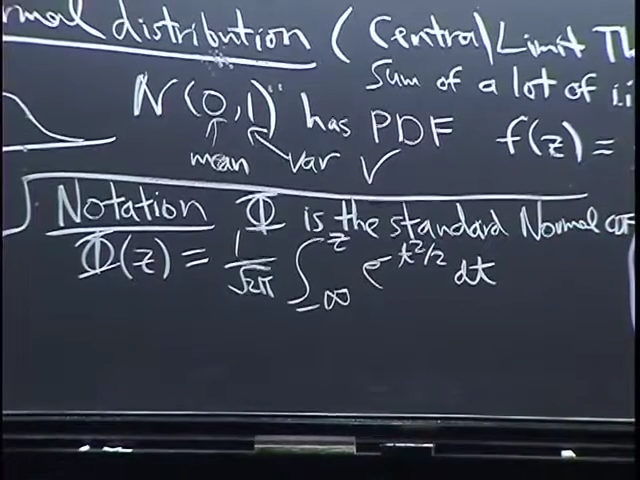 mal distribution (Central Limit Th
Sum of a lot of i.i
N(0,1) has PDF f(z) =
mean var ✓
Notation Φ is the standard Normal CDF
Φ(z) = 1/√2π ∫_{-∞}^{z} e^{-t²/2} dt